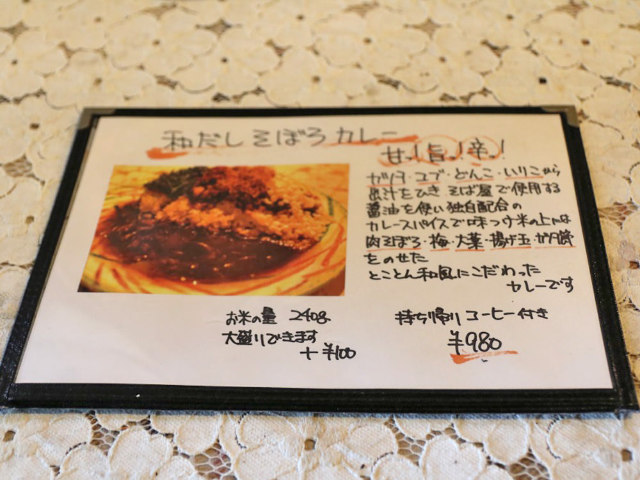 和だし そぼろ カレー
甘！旨！辛！
ガゴメ・コブ・どんこ・いりこから
出汁をひき そば屋で使用する
醤油を使い独自配合の
カレースパイスで味つけ 米の上には
肉そぼろ・梅・大葉・揚げ玉
をのせた
とことん和風にこだわった
カレーです
お米の量 240g
大盛りできます
+¥100
持ち帰り コーヒー付き
¥980